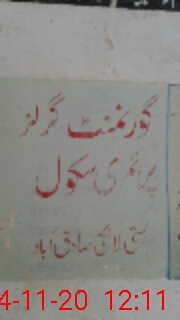 گورنمنٹ گرلز
پرائمری سکول
بستی لانگی صادق آباد
4-11-20 12:11